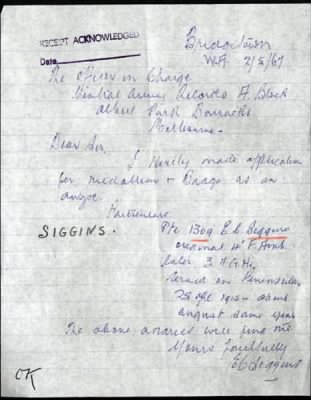 RECEIPT ACKNOWLEDGED
Date
Bridgetown
W.A. 2/5/67
The Officer in Charge
Central Army Records A. Block
Albert Park Barracks
Melbourne.
Dear Sir,
I hereby made application
for medallion + Badge as an
Particulars
SIGGINS.
Pte 1309 E C Siggins
original 4th F. Amb.
later 3 A.G.H.
served on Peninsular
25 Apl 1915 to about
August same year
The above address will find me
Yours Faithfully
E C Siggins